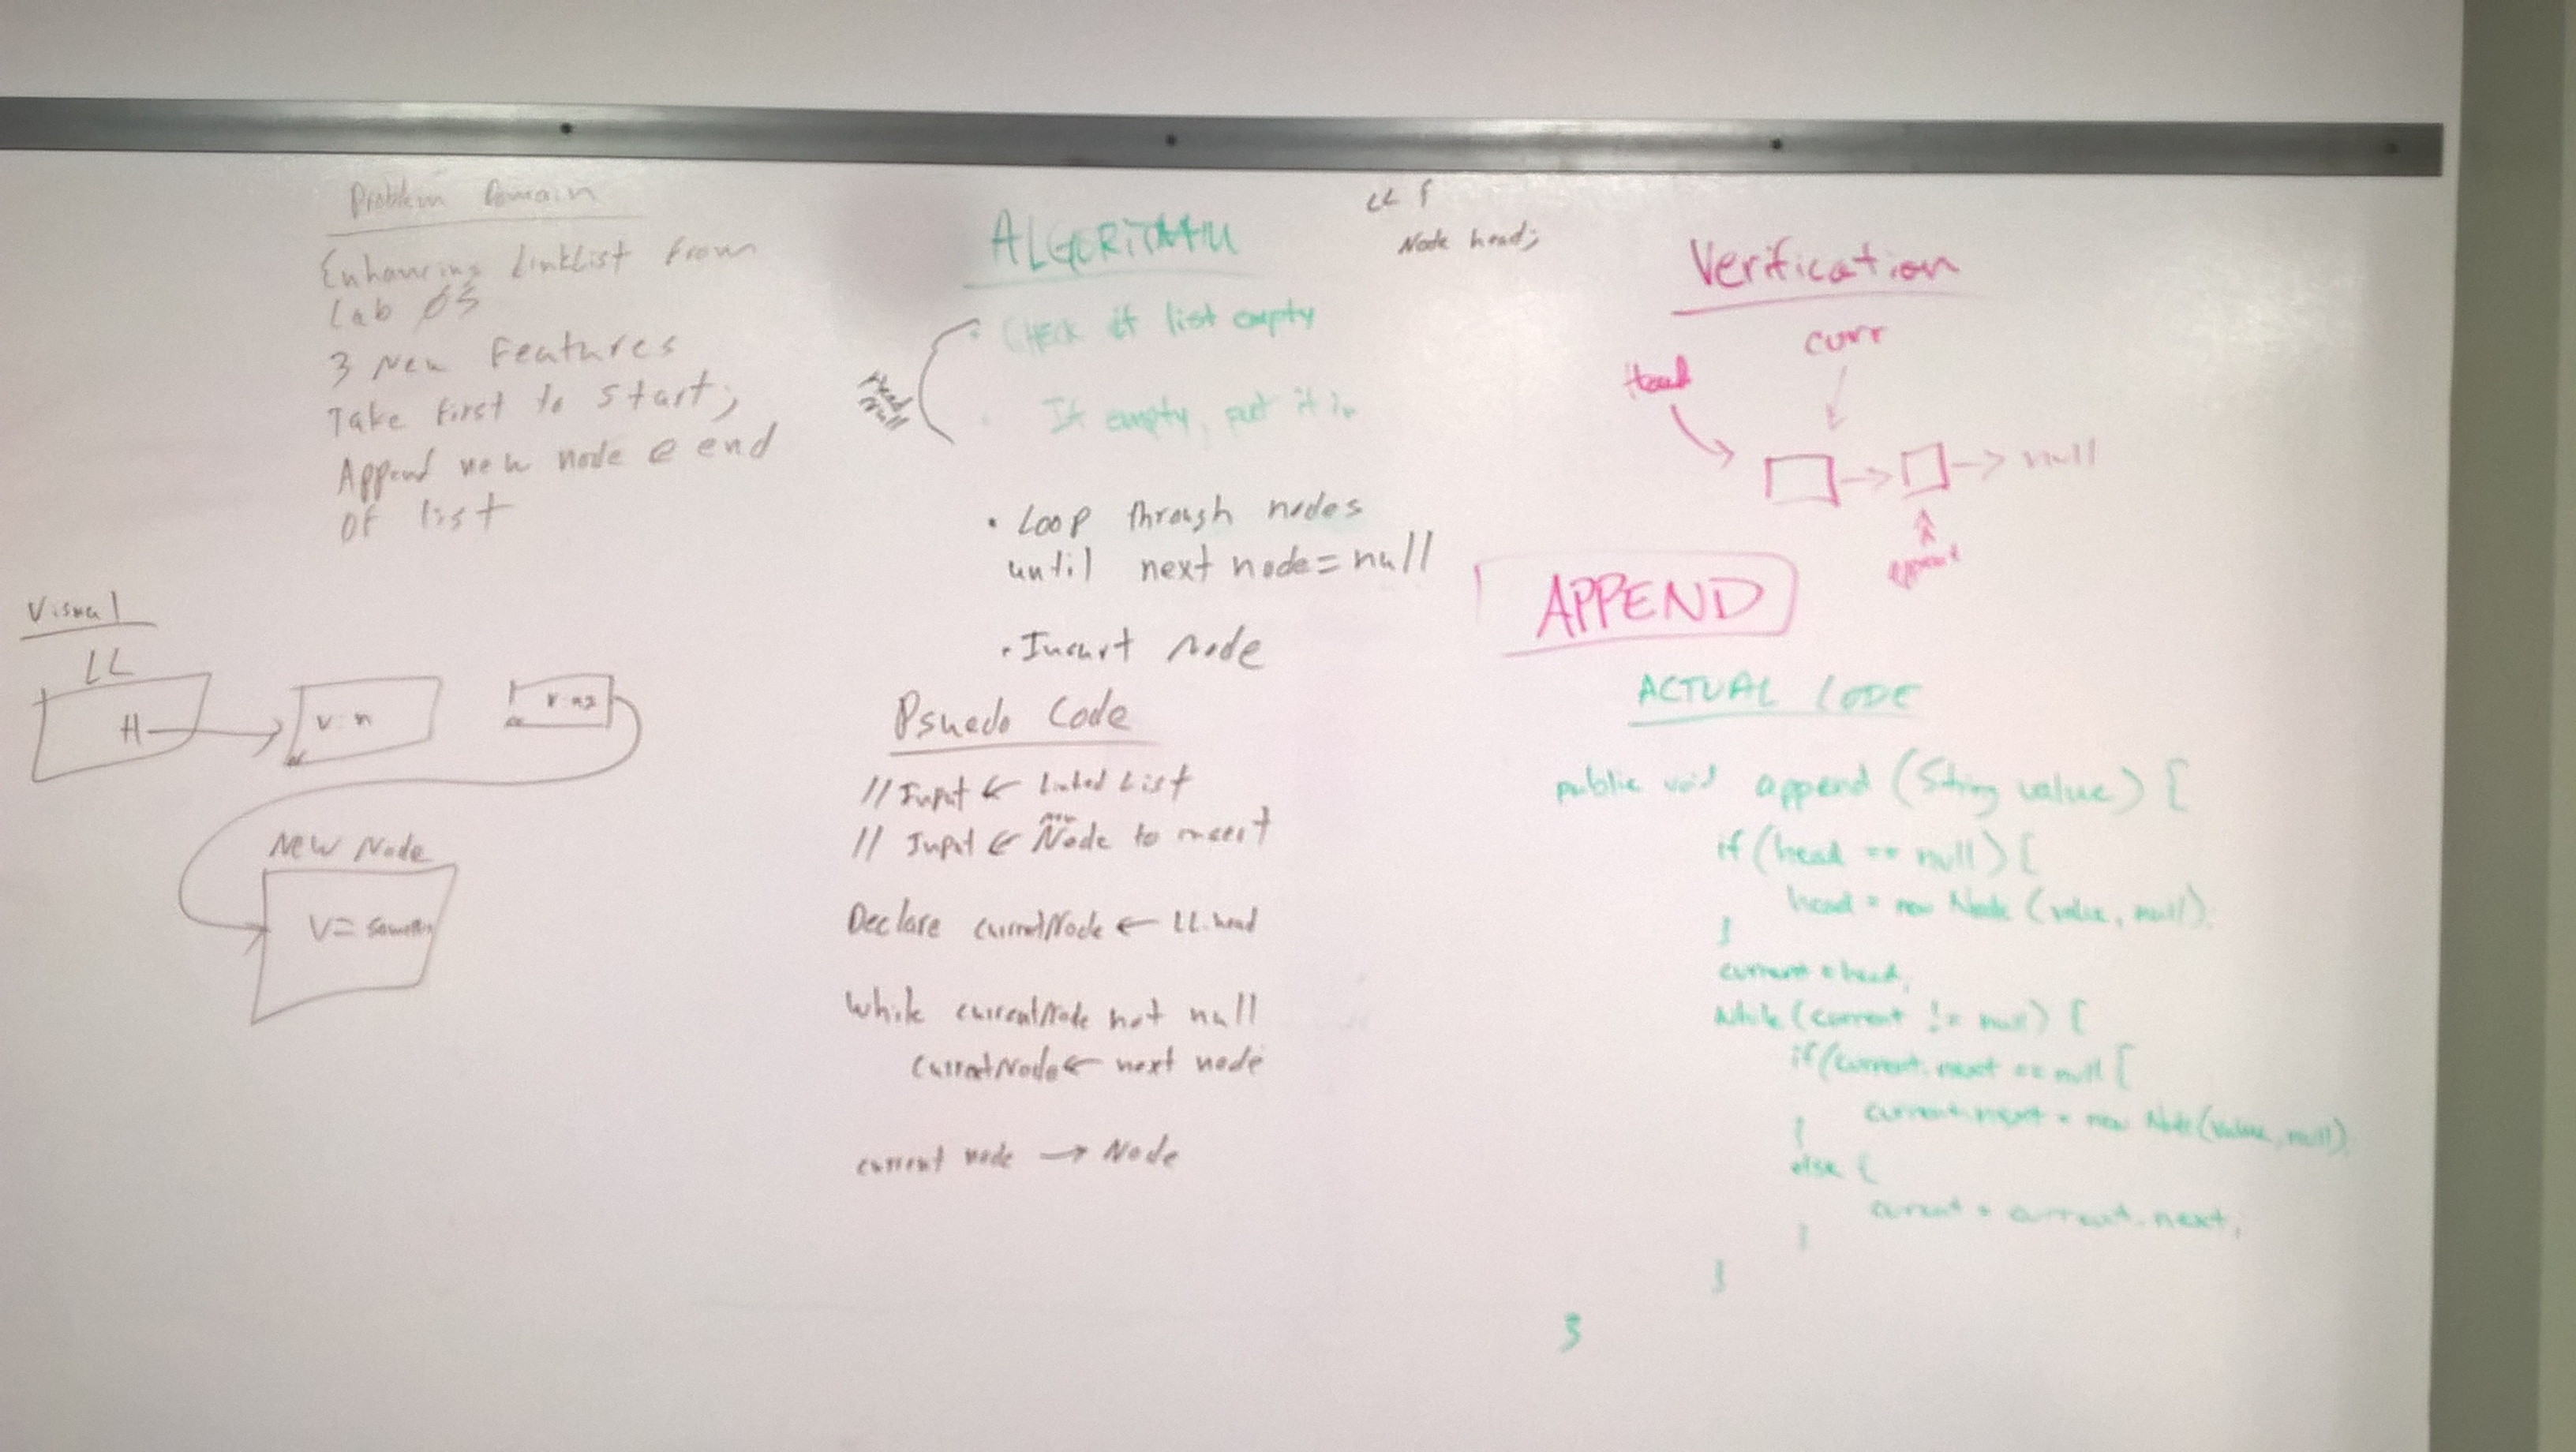 Problem Domain
Enhancing LinkList from
Lab 05
3 New Features
Take first to start;
Append new node @ end
of list
Visual
LL
H
V: n
V: n2
New Node
V=
ALGORITHM
Check if list empty
If empty, put it in
Head null
• Loop through nodes
until next node = null
• Insert Node
Psuedo Code
// Input ← Linked List
// Input ← new Node to insert
Declare currentNode ← LL.head
While currentNode not null
currentNode ← next node
current node → Node
LL {
Node head;
Verification
curr
Head
null
append
APPEND
ACTUAL CODE
public void append (String value) {
if (head == null) {
head = new Node (value, null);
}
current = head;
while (current != null) {
if (current.next == null {
current.next = new Node(value, null)
}
else {
current = current.next;
}
}
}